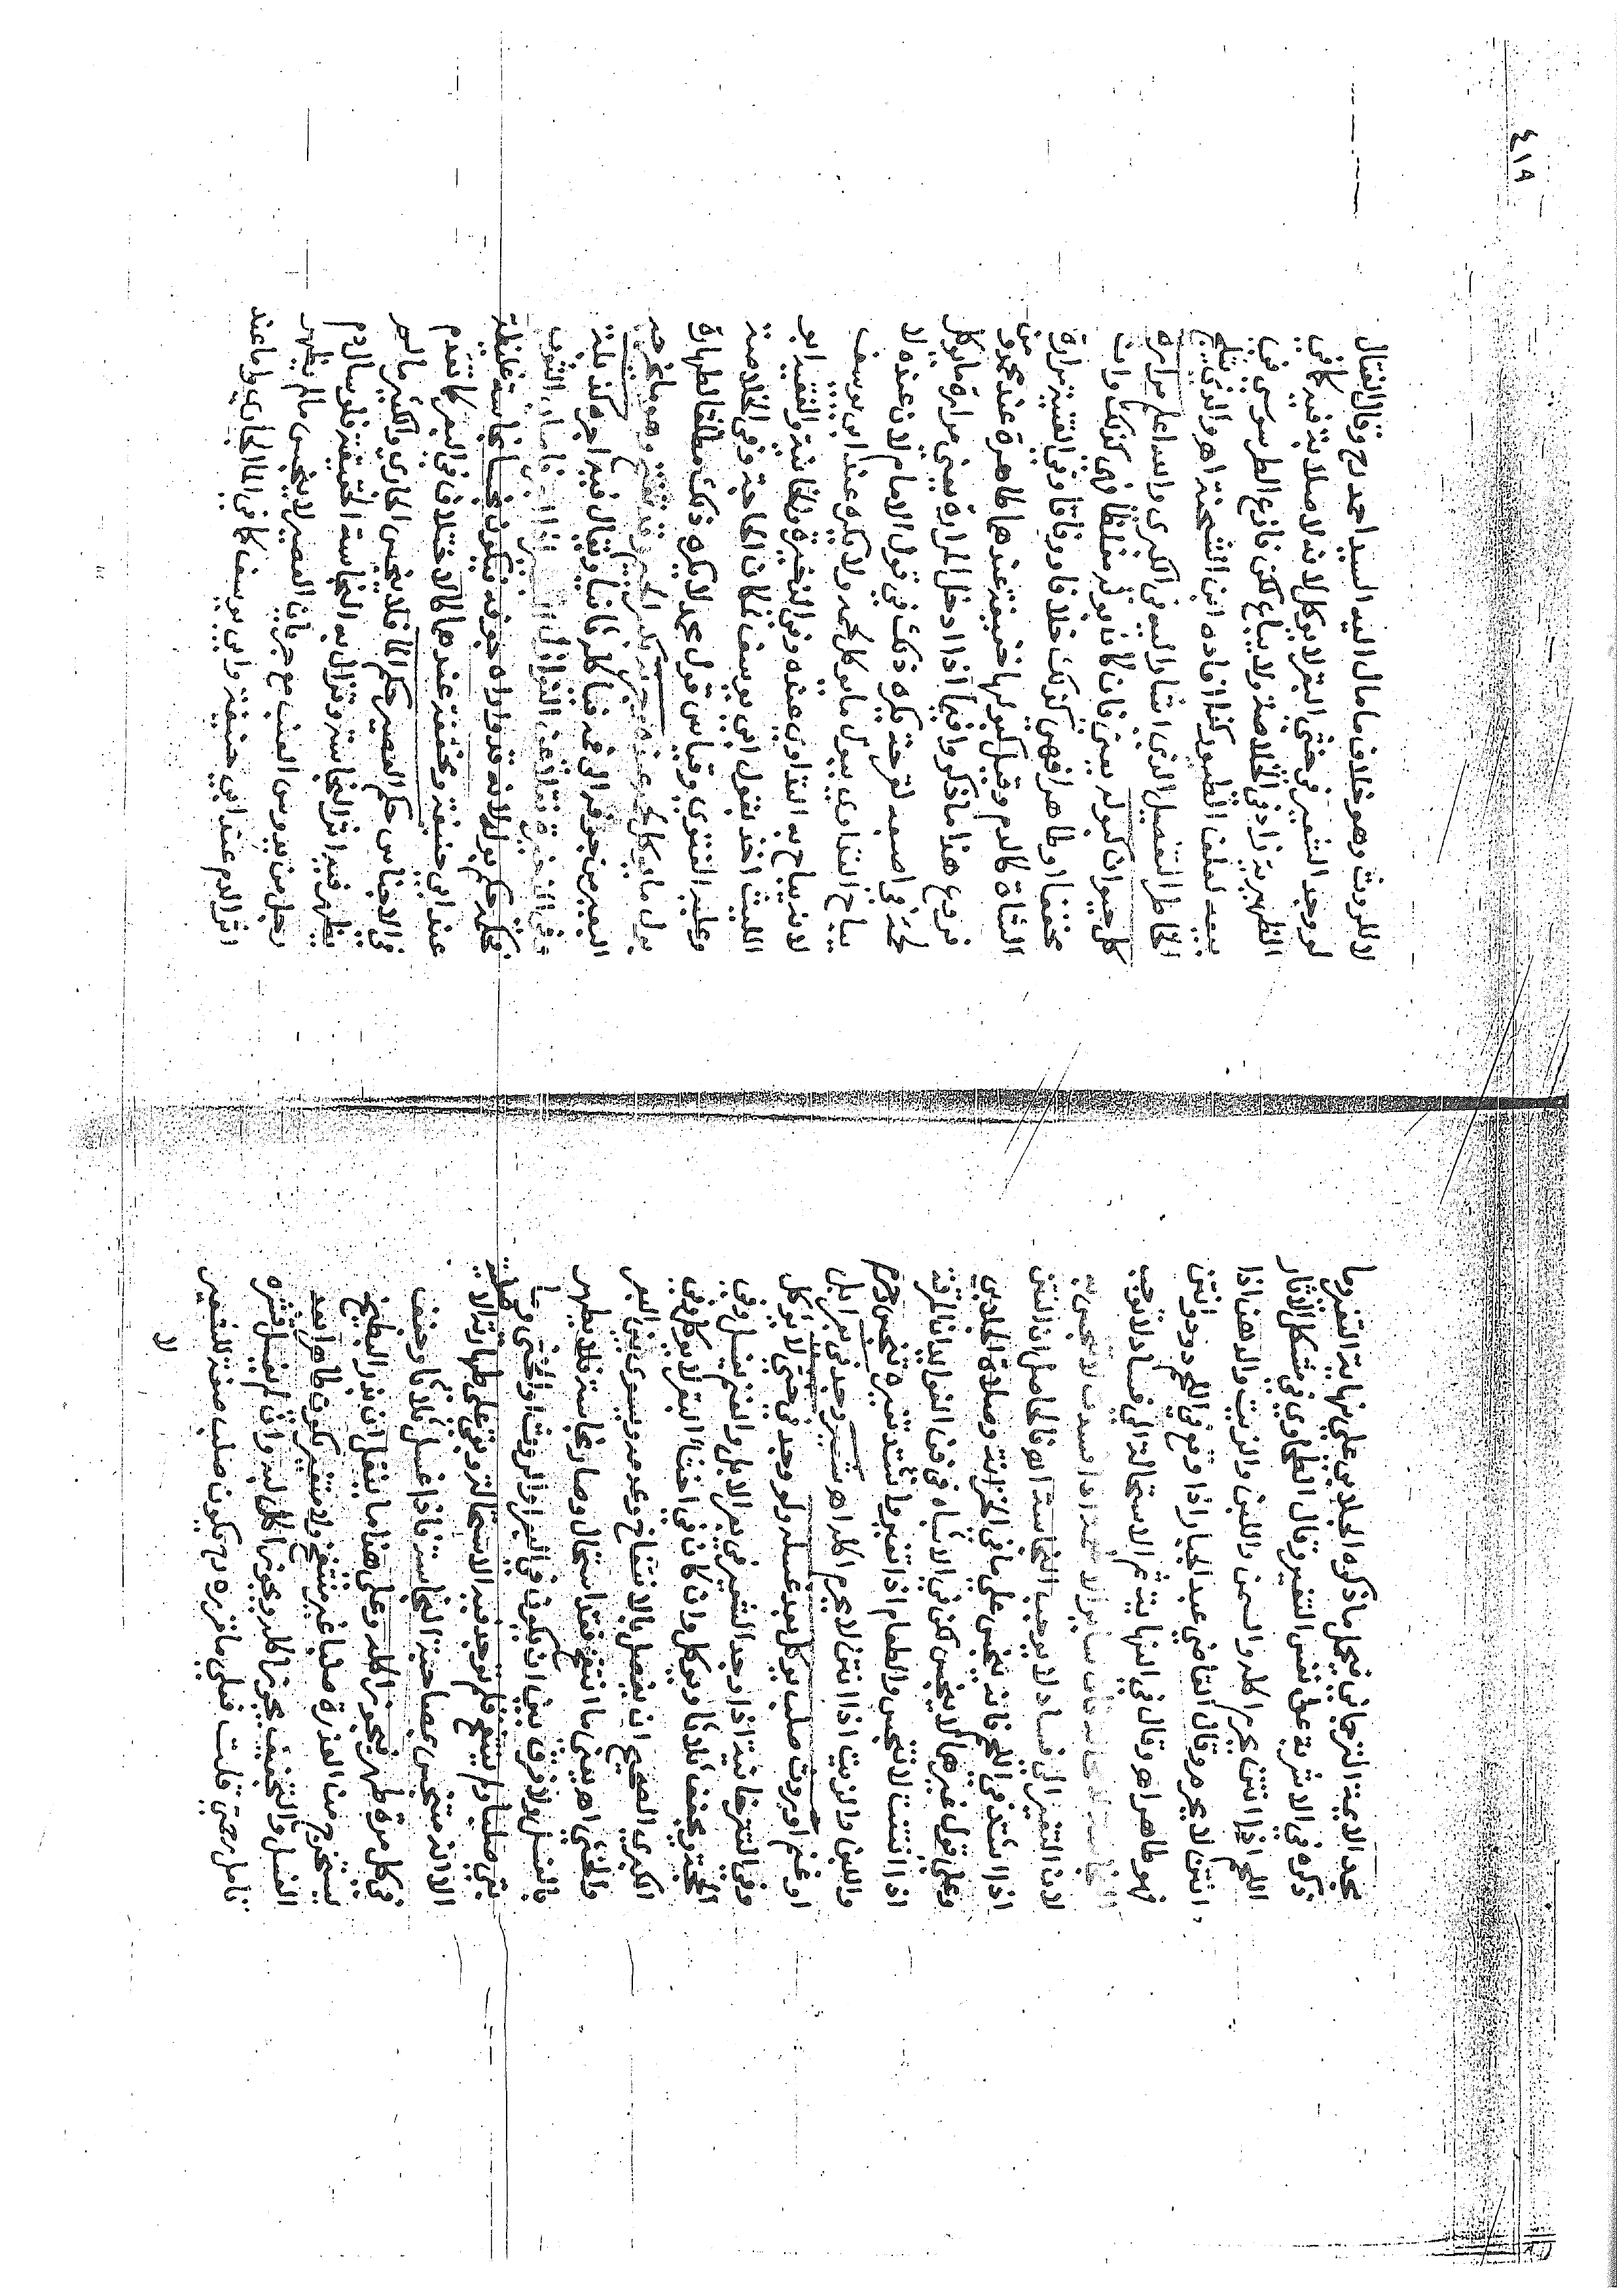 مجد الائمة الترجماني فيحمل ما ذكره الجلابي على نهاية التغير وما
ذكره في الاشربة على نفس التغير وقال الطحاوي في مشكل الآثار
اللحم اذا انتن يحرم اكله والسمن واللبن والزيت والدهن اذا
انتن لا يحرم وقال القاضي عبد الجبار اذا وقع في اللحم دود وانتن
فهو طاهر اهـ وقال في النهاية ثم الاستحالة الى فساد لا توجب
النجاسة لا محالة فان سائر الاطعمة اذا فسدت لا تنجس به
لان التغير الى فساد لا يوجب النجاسة اهـ فالحاصل ان النتن
اذا اشتد في اللحم فانه ينجس على ما في الخزانة وصلاة الجلابي
وعلى قول غيرها لا ينجس لكن في الاشباه في فن الفوائد ان المرقة
اذا انتنت لا تنجس والطعام اذا تغير واشتد تغيره تنجس وحرم
واللبن والزيت اذا انتن لا يحرم اكله اهـ شعير وجد في بعر ابل
او غنم او روث صلب يؤكل بعد غسله ولو وجد في خثي لا يؤكل
وفي التترخانية اذا وجد الشعير في بعر الابل والغنم يغسل وفي
الحجة ويجفف ثلاثا ويؤكل وان كان في اخثاء البقر لا يؤكل وفي
الكبرى الصحيح ان يفصل بالانتفاخ وعدمه ويسوى بين البعر
والخثي اهـ يعني ما انتفخ فقد استحال وصار نجاسة فلا يطهر
بالغسل ولا فرق بين ان يكون في البعر او الروث او الخثي وما
بقي صلبا ولم ينتفخ فلم توجد فيه الاستحالة وبقي على طهارته الاصلية
الا انه متنجس بمصاحبة النجاسة فاذا غسل ثلاثا وجفف
في كل مرة طهر فيجوز اكله وعلى هذا ما ينقل ان بذر البطيخ
يستخرج من العذرة صلبا غير منتفخ ولا متغير يكون طاهرا بعد
الغسل والتجفيف يجوز اكله ويجوز اكل لبه وان لم يغسل قشره
تأمل رحمتي قلت فعلى ما قرره رح يكون صلب صفة للشعير
لا
٤١٩
لا للروث وهو خلاف ما مال اليه السيد احمد رح وقال القتال
لو وجد الشعير في خثى البقر لا يؤكل لانه لا صلابة فيه كما في
الظهيرية زاد في الخلاصة ولا يباع لكن نازع الطرسوسي في
بيعه لعلف الطيور كذا افاده ابن الشحنة اهـ والذي ينتلج
الخاطر التفصيل الذي اشار اليه في الكبرى والله اعلم مرارة
كل حيوان كبوله يعني فان كان بوله مغلظا فهي كذلك وان
مخففا او طاهرا فهي كذلك خلافا ووفاقا وفي القنية مرارة
الشاة كالدم وقيل كبولها خفيفة عندهما طاهرة عند محمد من
فروع هذا ما ذكروا فيما اذا ادخل المرارة يعني مرارة مأكول
لحمه في اصبعه لقرحة يكره ذلك في قول الامام لان عنده لا
يباح التداوي ببول ما يوكل لحمه ولا يكره عند ابي يوسف
لانه يباح به التداوي عنده وفي الذخيرة والخانية والفقيه ابو
الليث اخذ بقول ابي يوسف لمكان الحاجة وفي الخلاصة
وعليه الفتوى وقياس قول محمد لا يكره ذلك مطلقا لطهارة
بول ما يؤكل لحمه عنده
البعير من جوفه الى فمه فيأكله ثانيا ويقال فيه اجتر
فكذا حكم بوله لانه قد واراه جوفه فيكون نجسا نجاسة غليظة
عند ابي حنيفة ومخففة عندهما كالاختلاف في البعر كما تقدم
في الاجناس حكم العصير حكم الماء فلا ينجس الجاري والكثير ما لم
يظهر فيه اثر النجاسة وتزال به النجاسة الحقيقية فلو سال دم
رجل من يدوس العنب مع جريان العصير لا ينجس ما لم يظهر
اثر الدم عند ابي حنيفة وابي يوسف كما في الماء الجاري واما عند